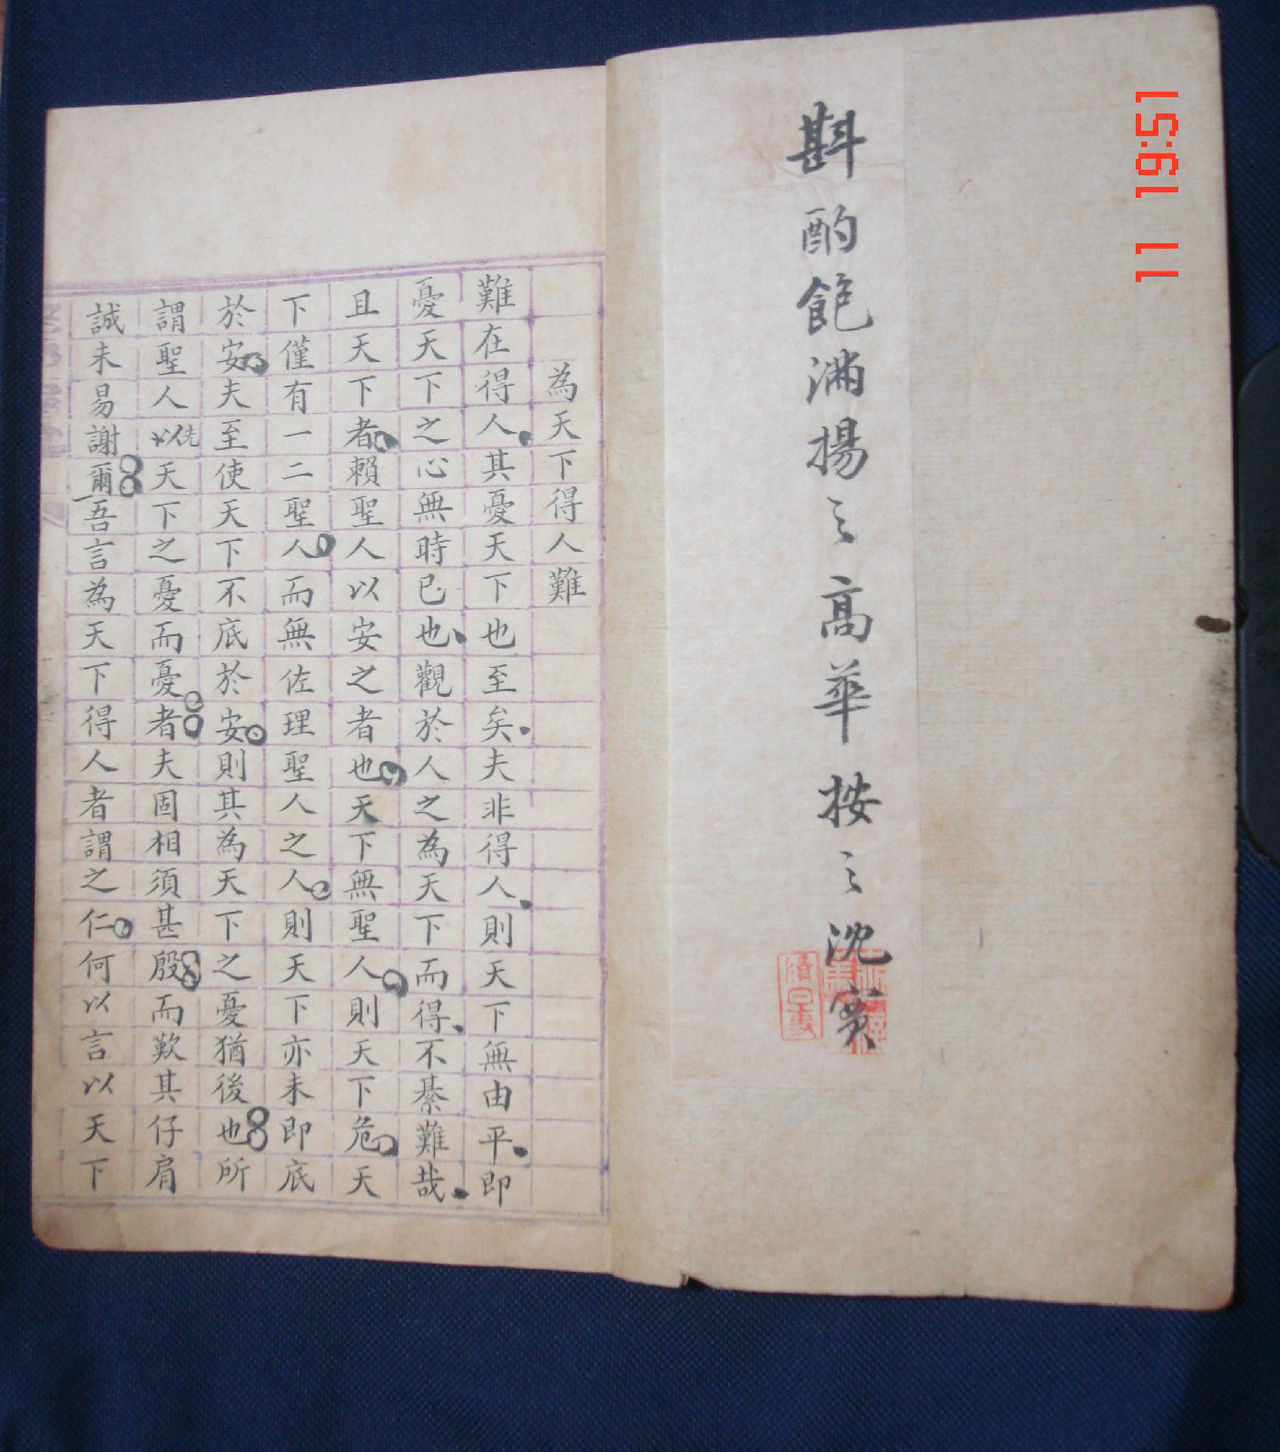 斟酌飽滿揚之高華按之沈實
為天下得人難
難在得人其憂天下也至矣夫非得人則天下無由平即
憂天下之心無時已也觀於人之為天下而得不綦難哉
且天下者賴聖人以安之者也天下無聖人則天下危天
下僅有一二聖人而無佐理聖人之人則天下亦未即底
於安夫至使天下不底於安則其為天下之憂猶後也所
謂聖人以先天下之憂而憂者夫固相須甚殷而歎其仔肩
誠未易謝爾吾言為天下得人者謂之仁何以言以天下
11 19:51